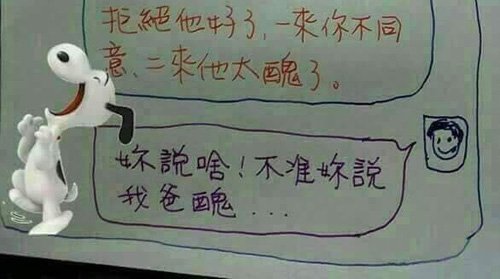 拒絕他好了，一來你不同
意、二來他太醜了。
妳說啥！不准妳說
我爸醜...